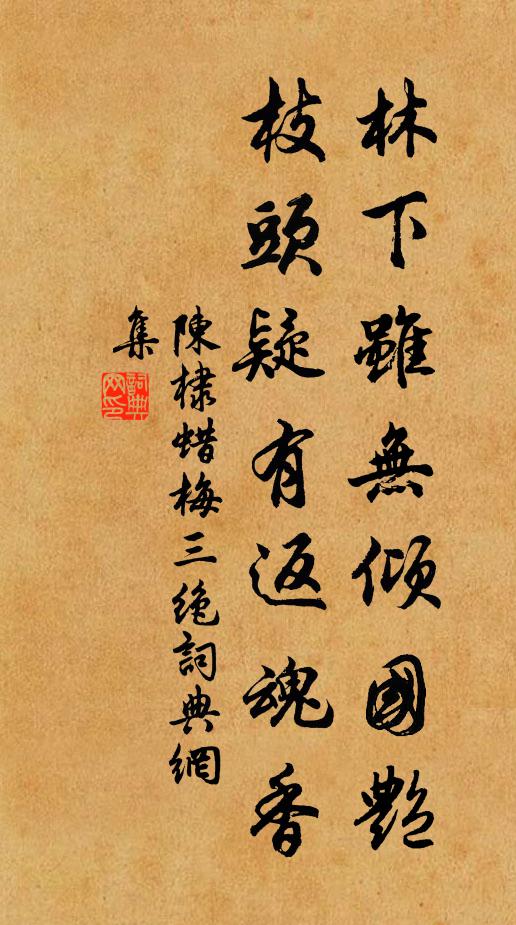 林下雖無傾國艷
枝頭疑有返魂香
陳棣蜡梅三絕詞典網
集
詞典网印